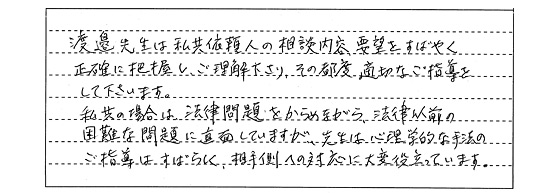 渡邉先生は私共依頼人の相談内容、要望をすばやく
正確に把握し、ご理解下さり、その都度、適切なご指導を
して下さいます。
私共の場合は、法律問題をからめながら、法律以前の
困難な問題に直面していますが、先生は心理学的な手法の
ご指導はすばらしく、相手側への対応に大変役立っています。